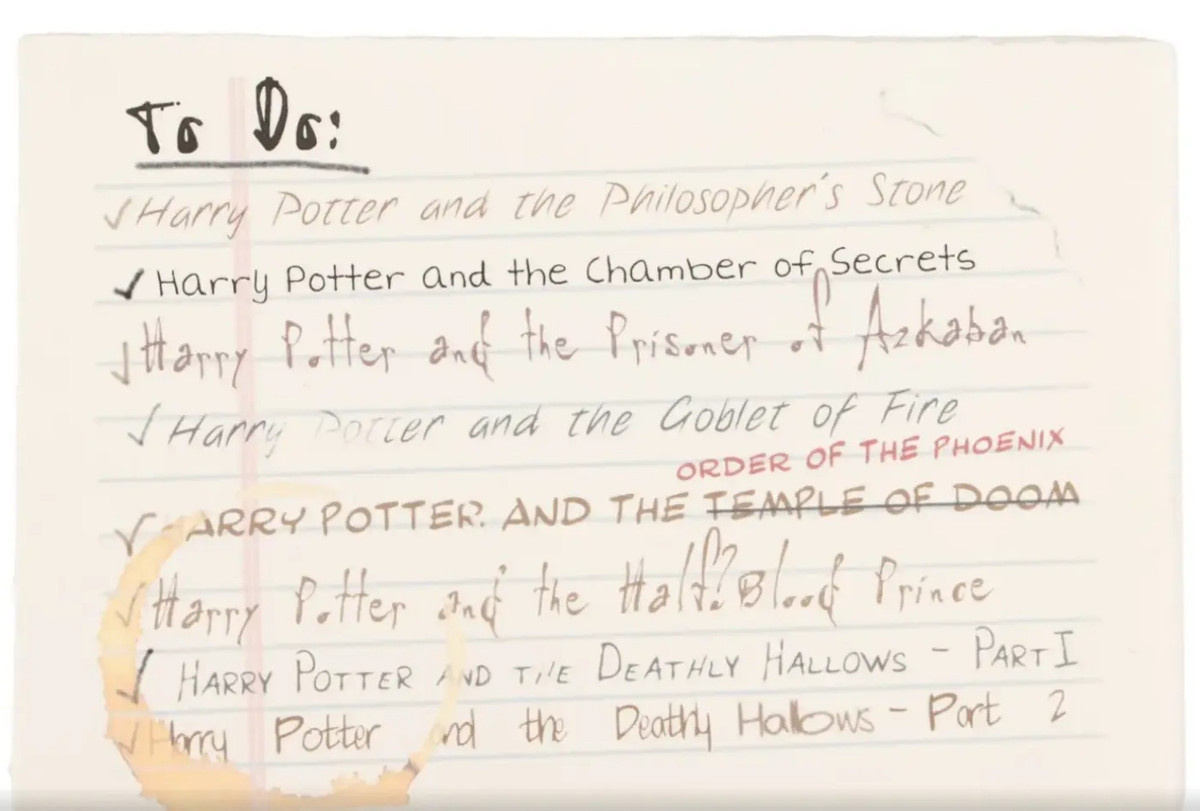 To Do:
✓ Harry Potter and the Philosopher's Stone
✓ Harry Potter and the Chamber of Secrets
✓ Harry Potter and the Prisoner of Azkaban
✓ Harry Potter and the Goblet of Fire
ORDER OF THE PHOENIX
✓ HARRY POTTER. AND THE TEMPLE OF DOOM
✓ Harry Potter and the Half?Blood Prince
✓ HARRY POTTER AND THE DEATHLY HALLOWS - PART I
✓ Harry Potter and the Deathly Hallows - Part 2